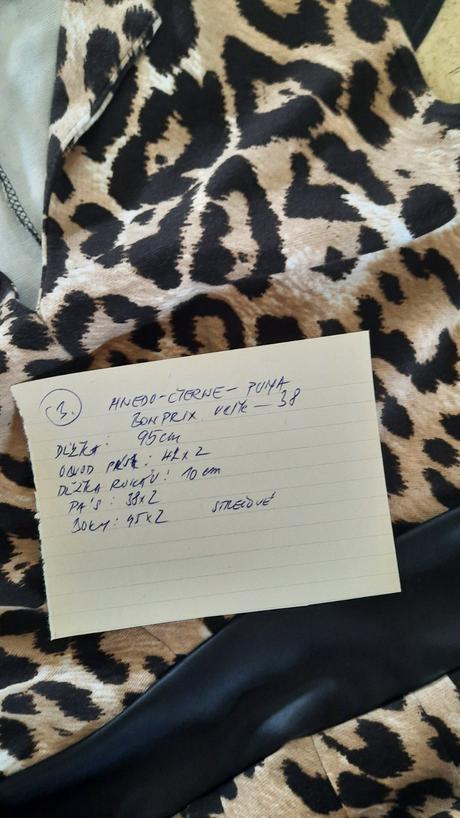 3.
HNEDO-ČIERNE-PUMA
BONPRIX veľk - 38
DĹŽKA: 95cm
OBVOD PŔS: 42x2
DĹŽKA RUKÁVU: 10 cm
PÁS: 38x2
STREČOVÉ
BOKY: 45x2